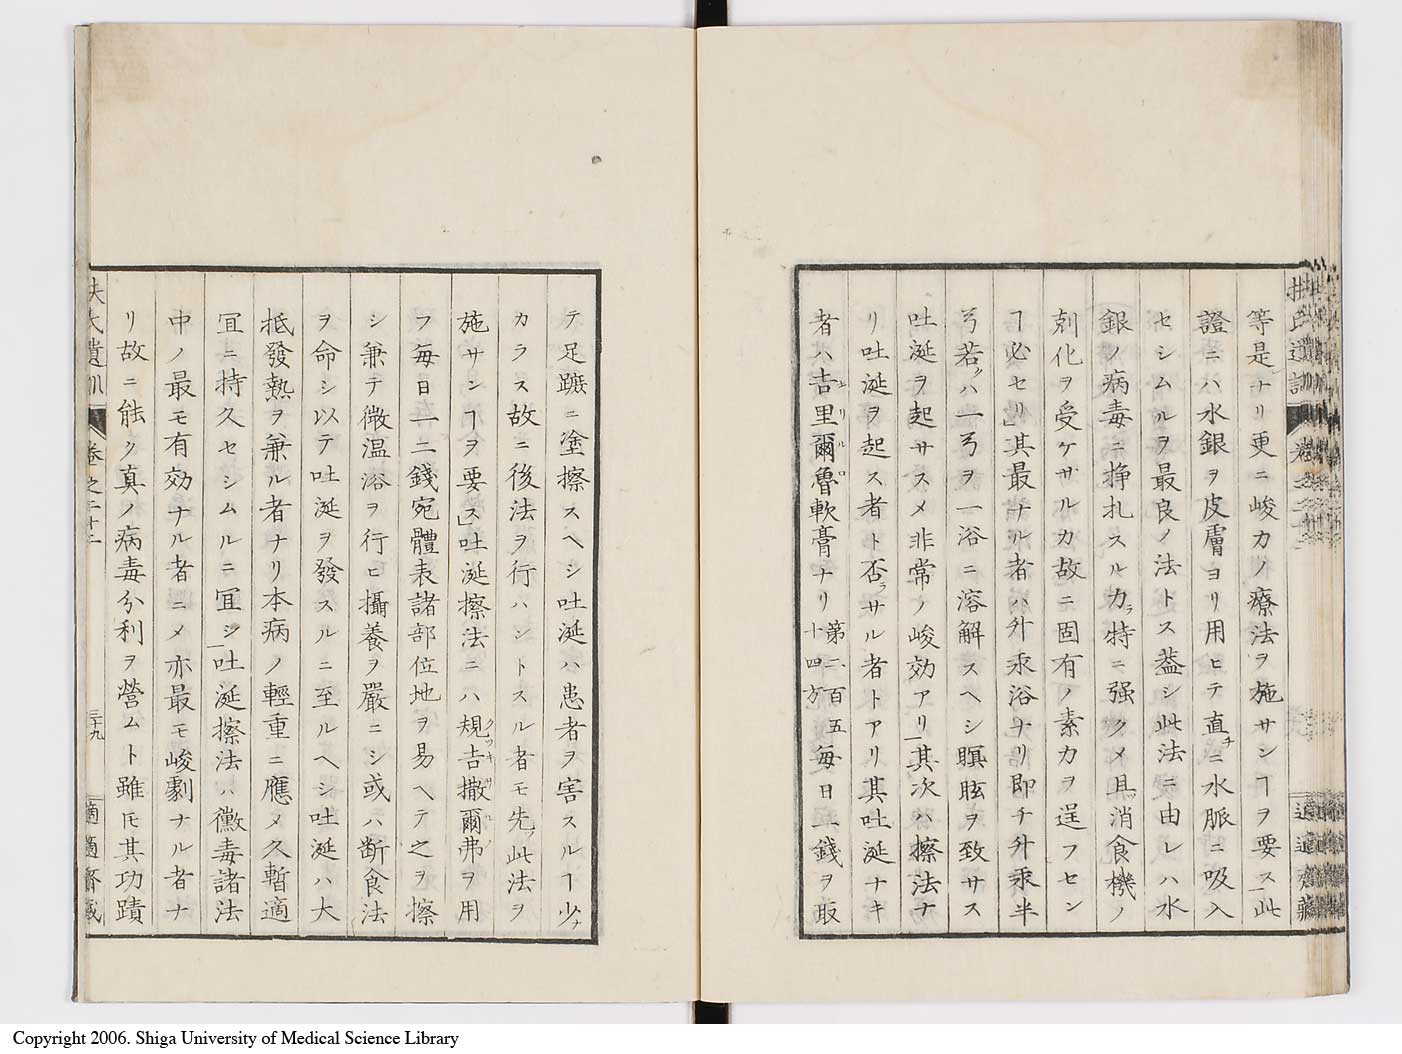 等是ナリ更ニ峻力ノ療法ヲ施サンヿヲ要ス此
證ニハ水銀ヲ皮膚ヨリ用ヒテ直チニ水脈ニ吸入
セシムルヲ最良ノ法トス蓋シ此法ニ由レハ水
銀ノ病毒ニ掙扎スル力特ニ强クメ且消食機ノ
剋化ヲ受ケザルカ故ニ固有ノ素力ヲ逞フセン
ヿ必セリ」其最ナル者ハ升汞浴ナリ即チ升汞半
弓若クハ一弓ヲ一浴ニ溶解スヘシ瞑眩ヲ致サス
吐涎ヲ起サスメ非常ノ峻効アリ」其次ハ擦法ナ
リ吐涎ヲ起ス者ト否ラサル者トアリ其吐涎ナキ
者ハ𠮷里爾魯軟膏ナリ第二百五十四方毎日一錢ヲ取
テ足蹠ニ塗擦スヘシ吐涎ハ患者ヲ害スルヿ少ナ
カラス故ニ後法ヲ行ハントスル者モ先ツ此法ヲ
施サンヿヲ要ス」吐涎擦法ニハ規𠮷撒爾弗ヲ用
フ毎日一二錢宛體表諸部位地ヲ易ヘテ之ヲ擦
シ兼テ微温浴ヲ行ヒ攝養ヲ嚴ニシ或ハ断食法
ヲ命シ以テ吐涎ヲ發スルニ至ルヘシ吐涎ハ大
抵發熱ヲ兼ル者ナリ本病ノ輕重ニ應メ久暫適
冝ニ持久セシムルニ冝シ」吐涎擦法ハ黴毒諸法
中ノ最モ有効ナル者ニメ亦最モ峻劇ナル者ナ
リ故ニ能ク真ノ病毒分利ヲ營ムト雖𪜈其功蹟
扶氏遺訓 卷之二十二 三十九 適適齋藏
Copyright 2006. Shiga University of Medical Science Library